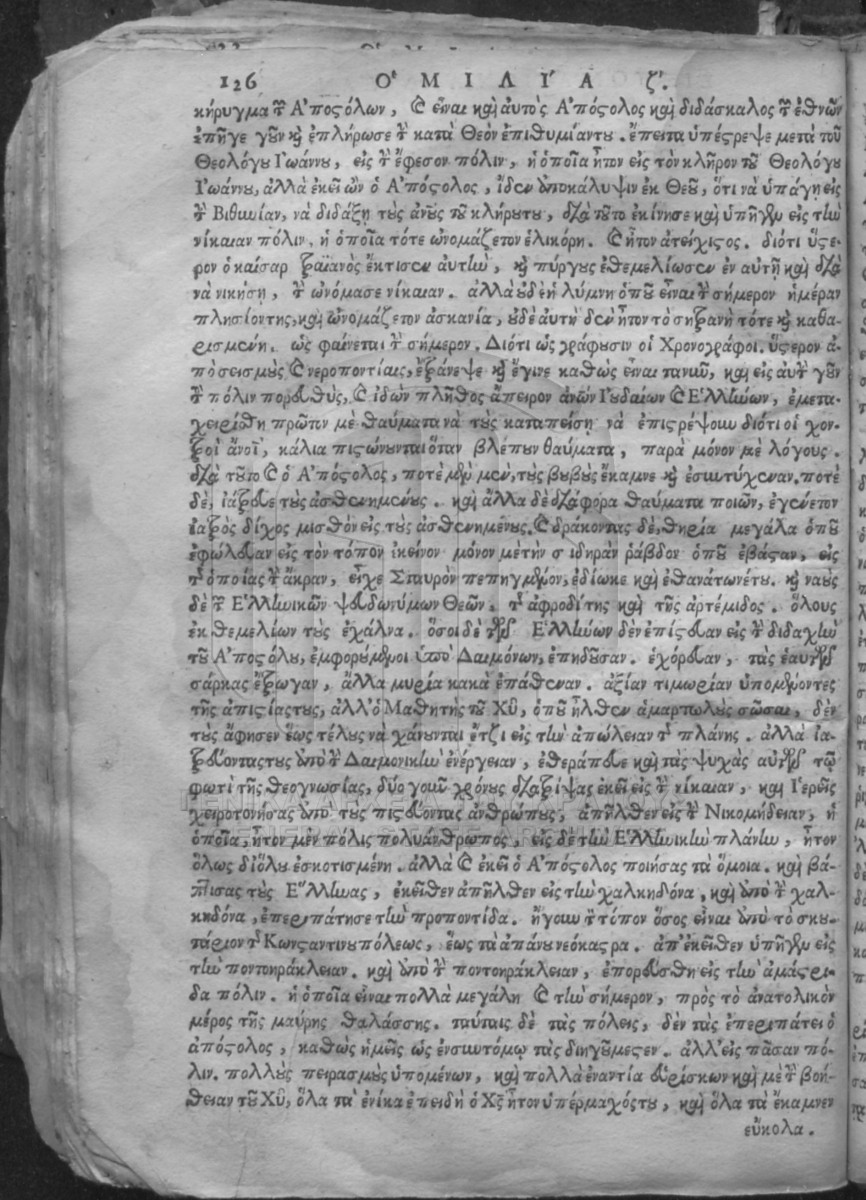 126 ὉΜΙΛΊΑ ζ'.
κήρυγμα τῶν Ἀποστόλων, καὶ εἶναι καὶ αὐτὸς Ἀπόστολος καὶ διδάσκαλος τῶν ἐθνῶν
ἐπῆγε γοῦν καὶ ἐπλήρωσε τὴν κατὰ Θεὸν ἐπιθυμίαντου. ἔπειτα ὑπέστρεψε μετὰ τοῦ
Θεολόγου Ἰωάννου, εἰς τὴν ἔφεσον πόλιν, ἡ ὁποῖα ἦτον εἰς τὸν κλῆρον τοῦ Θεολόγου
Ἰωάννου, ἀλλὰ ἐκεῖ ὢν ὁ Ἀπόστολος, ἴδεν ἀποκάλυψιν ἐκ Θεοῦ, ὅτι νὰ ὑπάγῃ εἰς
τὴν Βιθυνίαν, νὰ διδάξῃ τοὺς ἀνους τοῦ κλήρουτου, διὰ τοῦτο ἐκίνησε καὶ ὑπῆγεν εἰς τὴν
νίκαιαν πόλιν, ἡ ὁποῖα τότε ὠνομάζετον ἑλικόρη. καὶ ἦτον ἀτείχιστος. διότι ὕστε-
ρον ὁ καίσαρ τραϊανὸς ἔκτισεν αὐτὴν, καὶ πύργους ἐθεμελίωσεν ἐν αὐτῇ καὶ διὰ
νὰ νικήσῃ, τὴν ὠνόμασε νίκαιαν. ἀλλὰ οὐδὲ ἡ λύμνη ὁποῦ εἶναι τὴν σήμερον ἡμέραν
πλησίοντης, καὶ ὠνομάζετον ἀσκανία, οὐδὲ αὐτὴ δὲν ἦτον τὸ σητρανὴ τότε καὶ καθα-
ρισμένη. ὡς φαίνεται τὴν σήμερον. Διότι ὡς γράφουσιν οἱ Χρονογράφοι. ὕστερον ἀ-
πὸ σεισμοὺς καὶ νεροποντίαις, ἐξάνεψε καὶ ἔγινε καθὼς εἶναι τανῦν, καὶ εἰς αὐτὴν γοῦν
τὴν πόλιν πορευθεὶς, καὶ ἰδὼν πλῆθος ἄπειρον ἀνων Ἰουδαίων καὶ Ἑλλήνων, ἐμετα-
χειρίσθη πρῶτον μὲ θαύματα νὰ τοὺς καταπείσῃ νὰ ἐπιστρέψουν διότι οἱ χον-
τροὶ ἄνοι, κάλια πιστώνονται ὅταν βλέπουν θαύματα, παρὰ μόνον μὲ λόγους.
διὰ τοῦτο καὶ ὁ Ἀπόστολος, ποτὲ μὲν μὲν, τοὺς βουβοὺς ἔκαμνε καὶ ἐσυντύχεναν. ποτὲ
δὲ, ἰάτρευε τοὺς ἀσθενημένους. καὶ ἄλλα δὲ διάφορα θαύματα ποιῶν, ἐγένετον
ἰατρὸς δίχος μισθὸν εἰς τοὺς ἀσθενημένους. καὶ δράκοντας δὲ, θηρία μεγάλα ὁποῦ
ἐφώλευαν εἰς τὸν τόπον ἐκεῖνον μόνον μὲ τὴν σιδηρὰν ῥάβδον ὁποῦ ἐβάσταν, εἰς
τῆς ὁποίας τὴν ἄκραν, εἶχε Σταυρὸν πεπηγμένον, ἐδίωκε καὶ ἐθανάτωνέτου. καὶ ναοὺς
δὲ τῶν Ἑλληνικῶν ψευδωνύμων Θεῶν. τῆς ἀφροδίτης καὶ τῆς ἀρτέμιδος. ὅλους
ἐκ θεμελίων τοὺς ἐχάλνα. ὅσοι δὲ τῶν Ἑλλήνων δὲν ἐπίστευαν εἰς τὴν διδαχὴν
τοῦ Ἀποστόλου, ἐμφορούμενοι ὑπὸ Δαιμόνων, ἐπηδοῦσαν. ἐχόρευαν, τὰς ἑαυτῶν
σάρκας ἔτρωγαν, ἄλλα μυρία κακὰ ἐπάθεναν. ἀξίαν τιμωρίαν ὑπομένοντες
τῆς ἀπιστίαςτους, ἀλλ' ὁ Μαθητὴς τοῦ Χυ, ὁποῦ ἦλθεν ἁμαρτωλοὺς σῶσαι, δὲν
τοὺς ἄφησεν ἕως τέλους νὰ χάνουνται ἔτζι εἰς τὴν ἀπώλειαν τῆς πλάνης. ἀλλὰ ἰα-
τρεύοντάςτους ἀπὸ τὴν Δαιμονικὴν ἐνέργειαν, ἐθεράπευε καὶ τὰς ψυχὰς αὐτῶν τῷ
φωτὶ τῆς θεογνωσίας, δύο γοῦν χρόνους διατρίψας ἐκεῖ εἰς τὴν νίκαιαν, καὶ Ἱερεῖς
χειροτονήσας ἀπὸ τοὺς πιστεύοντας ἀνθρώπους, ἀπῆλθεν εἰς τὴν Νικομήδειαν, ἡ
ὁποῖα, ἦτον μὲν πόλις πολυάνθρωπος, εἰς δὲ τὴν Ἑλληνικὴν πλάνην, ἦτον
ὅλως διόλου ἐσκοτισμένη. ἀλλὰ καὶ ἐκεῖ ὁ Ἀπόστολος ποιήσας τὰ ὅμοια. καὶ βα-
πτίσας τοὺς Ἕλληνας, ἐκεῖθεν ἀπῆλθεν εἰς τὴν χαλκηδόνα, καὶ ἀπὸ τὴν χαλ-
κηδόνα, ἐπερπάτησε τὴν προποντίδα. ἤγουν τὸν τόπον ὅσος εἶναι ἀπὸ τὸ σκου-
τάριον τῆς Κωνσταντινουπόλεως, ἕως τὰ ἀπάνου νεόκαστρα. ἀπ' ἐκεῖθεν ὑπῆγεν εἰς
τὴν ποντοηράκλειαν. καὶ ἀπὸ τὴν ποντοηράκλειαν, ἐπορεύσθη εἰς τὴν ἀμάστρι-
δα πόλιν. ἡ ὁποῖα εἶναι πολλὰ μεγάλη καὶ τὴν σήμερον, πρὸς τὸ ἀνατολικὸν
μέρος τῆς μαύρης θαλάσσης. ταύταις δὲ τὰς πόλεις, δὲν τὰς ἐπερπάτει ὁ
ἀπόστολος, καθὼς ἡμεῖς ὡς ἐν συντόμῳ τὰς διηγούμεσθεν. ἀλλ' εἰς πᾶσαν πό-
λιν. πολλοὺς πειρασμοὺς ὑπομένων, καὶ πολλὰ ἐναντία εὑρίσκων καὶ μὲ τὴν βοή-
θειαν τοῦ Χυ, ὅλα τὰ ἐνίκα ἐπειδὴ ὁ Χς ἦτον ὑπέρμαχόςτου, καὶ ὅλα τὰ ἔκαμνεν
εὔκολα.
ΓΕΝΙΚΑ ΑΡΧΕΙΑ ΤΟΥ ΚΡΑΤΟΥΣ
GENERAL STATE ARCHIVES